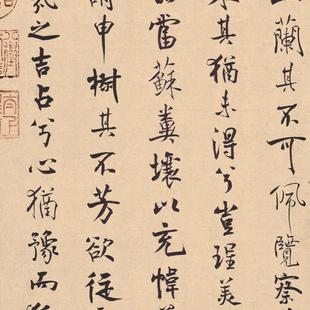 蘭其不可佩覽察
其猶未得兮豈珵美
當蘇糞壤以充幃
申樹其不芳欲從
氛之吉占兮心猶豫而